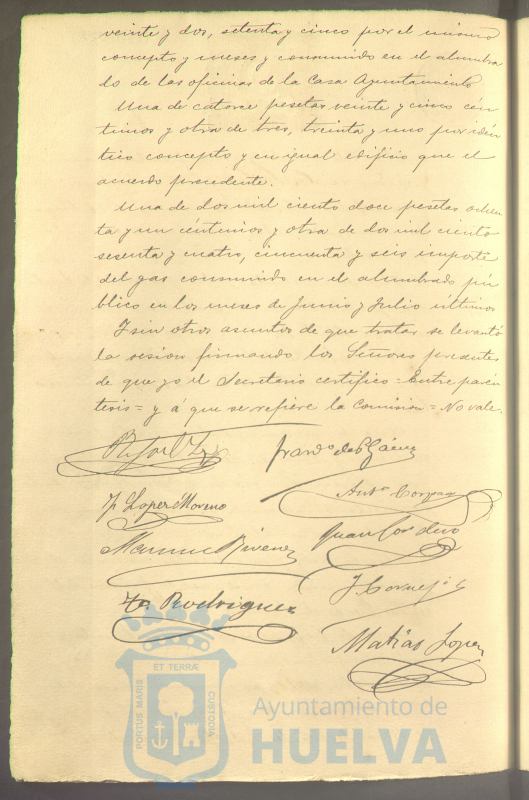 veinte y dos, setenta y cinco por el mismo
concepto y meses y consumido en el alumbra
do de las oficinas de la Casa Ayuntamiento
Una de catorce pesetas veinte y cinco cén
timos y otra de tres, treinta y uno por idén
tico concepto y en igual edificio que el
acuerdo precedente.
Una de dos mil ciento doce pesetas ochen
ta y un céntimos y otra de dos mil ciento
sesenta y cuatro, cincuenta y seis importe
del gas consumido en el alumbrado pú
blico en los meses de Junio y Julio últimos
Y sin otros asuntos de que tratar se levantó
la sesion firmando los Señores presentes
de que yo el Secretario certifico = Entre parén
tesis = y á que se refiere la Comision = No vale.
Rafael
Franco de P. Gáenz
Anto Corpas
F Lopez Moreno
Juan Cordero
Manuel Rivera
J. Cornejo
Fo Rodriguez
Matias Lopez
ET TERRÆ
PORTUS MARIS
CUSTODIA
Ayuntamiento de
HUELVA